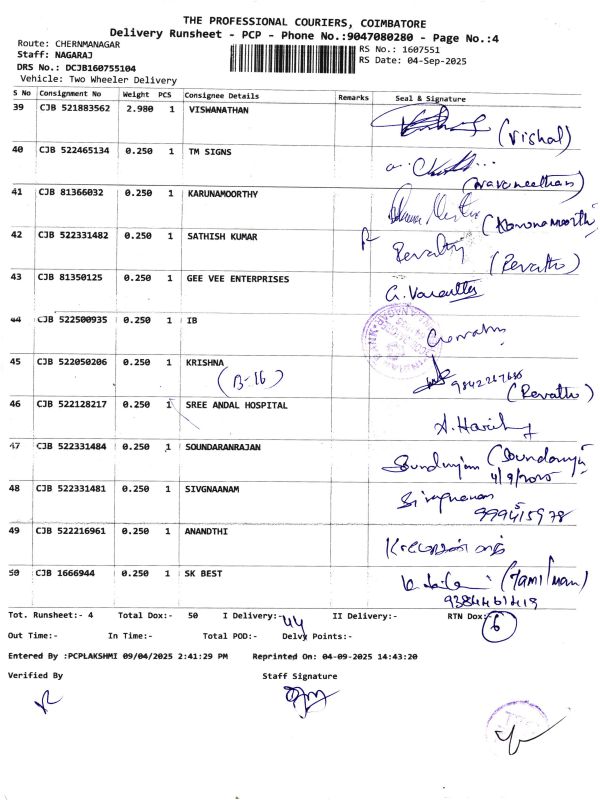 THE PROFESSIONAL COURIERS, COIMBATORE
Delivery Runsheet - PCP - Phone No.:9047080280 - Page No.:4
Route: CHERNMANAGAR
RS No.: 1607551
Staff: NAGARAJ
RS Date: 04-Sep-2025
DRS No.: DCJB160755104
Vehicle: Two Wheeler Delivery
S No Consignment No Weight PCS Consignee Details Remarks Seal & Signature
39 CJB 521883562 2.980 1 VISWANATHAN (Vishal)
40 CJB 522465134 0.250 1 TM SIGNS (Navaneethan)
41 CJB 81366032 0.250 1 KARUNAMOORTHY
42 CJB 522331482 0.250 1 SATHISH KUMAR Revathy (Revathy)
43 CJB 81350125 0.250 1 GEE VEE ENTERPRISES
44 CJB 522500935 0.250 1 IB
45 CJB 522050206 0.250 1 KRISHNA (B-16) (Revathy)
46 CJB 522128217 0.250 1 SREE ANDAL HOSPITAL
47 CJB 522331484 0.250 1 SOUNDARANRAJAN 4/9/2025
48 CJB 522331481 0.250 1 SIVGNAANAM Sivagnanam
49 CJB 522216961 0.250 1 ANANDTHI
50 CJB 1666944 0.250 1 SK BEST
Tot. Runsheet:- 4 Total Dox:- 50 I Delivery:- 44 II Delivery:- RTN Dox:- 6
Out Time:- In Time:- Total POD:- Delvy Points:-
Entered By :PCPLAKSHMI 09/04/2025 2:41:29 PM Reprinted On: 04-09-2025 14:43:20
Verified By Staff Signature